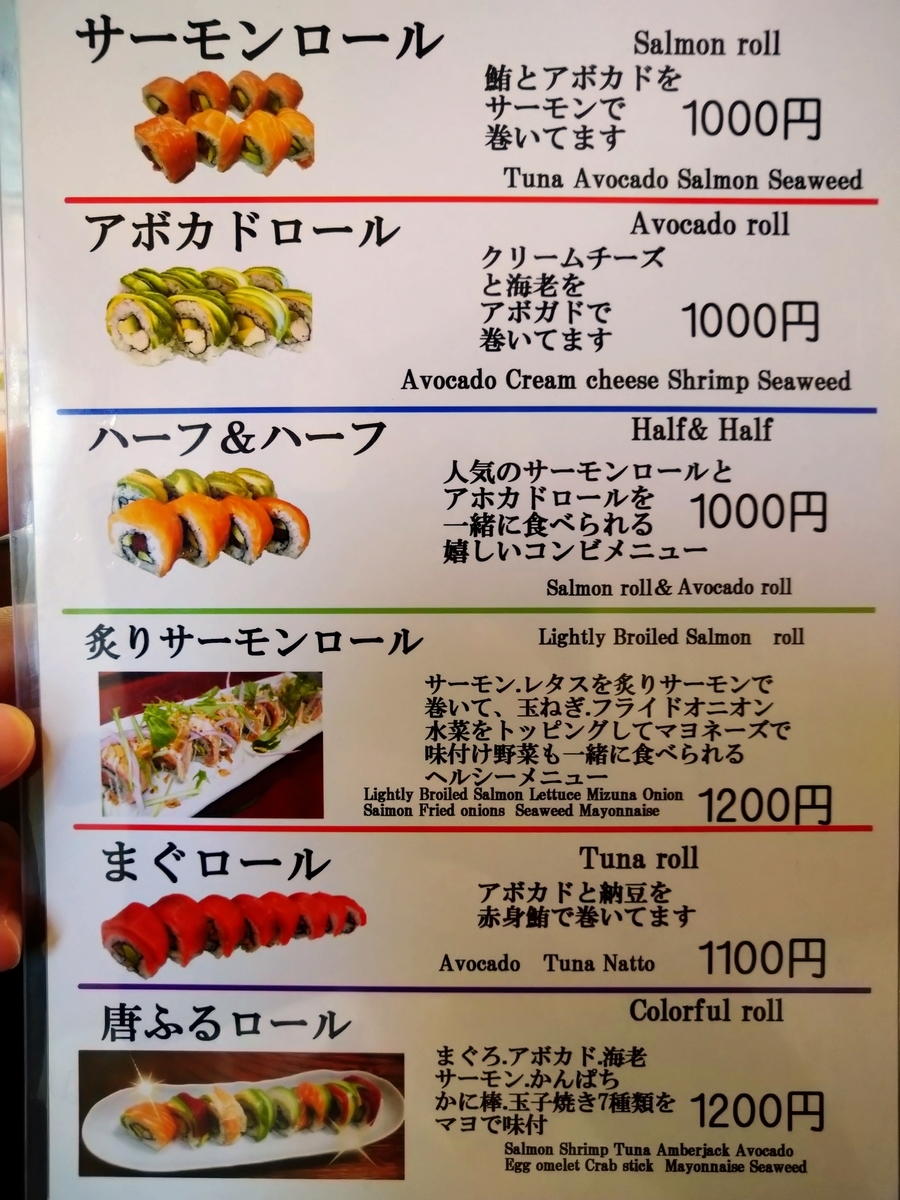 サーモンロール
Salmon roll
鮪とアボカドを
サーモンで
巻いてます
1000円
Tuna Avocado Salmon Seaweed
アボカドロール
Avocado roll
クリームチーズ
と海老を
アボガドで
巻いてます
1000円
Avocado Cream cheese Shrimp Seaweed
ハーフ&ハーフ
Half& Half
人気のサーモンロールと
アホカドロールを
一緒に食べられる
嬉しいコンビメニュー
1000円
Salmon roll& Avocado roll
炙りサーモンロール
Lightly Broiled Salmon roll
サーモン.レタスを炙りサーモンで
巻いて、玉ねぎ.フライドオニオン
水菜をトッピングしてマヨネーズで
味付け野菜も一緒に食べられる
ヘルシーメニュー
Lightly Broiled Salmon Lettuce Mizuna Onion
Saimon Fried onions Seaweed Mayonnaise
1200円
まぐロール
Tuna roll
アボカドと納豆を
赤身鮪で巻いてます
Avocado Tuna Natto
1100円
唐ふるロール
Colorful roll
まぐろ.アボカド.海老
サーモン.かんぱち
かに棒.玉子焼き7種類を
マヨで味付
1200円
Salmon Shrimp Tuna Amberjack Avocado
Egg omelet Crab stick Mayonnaise Seaweed